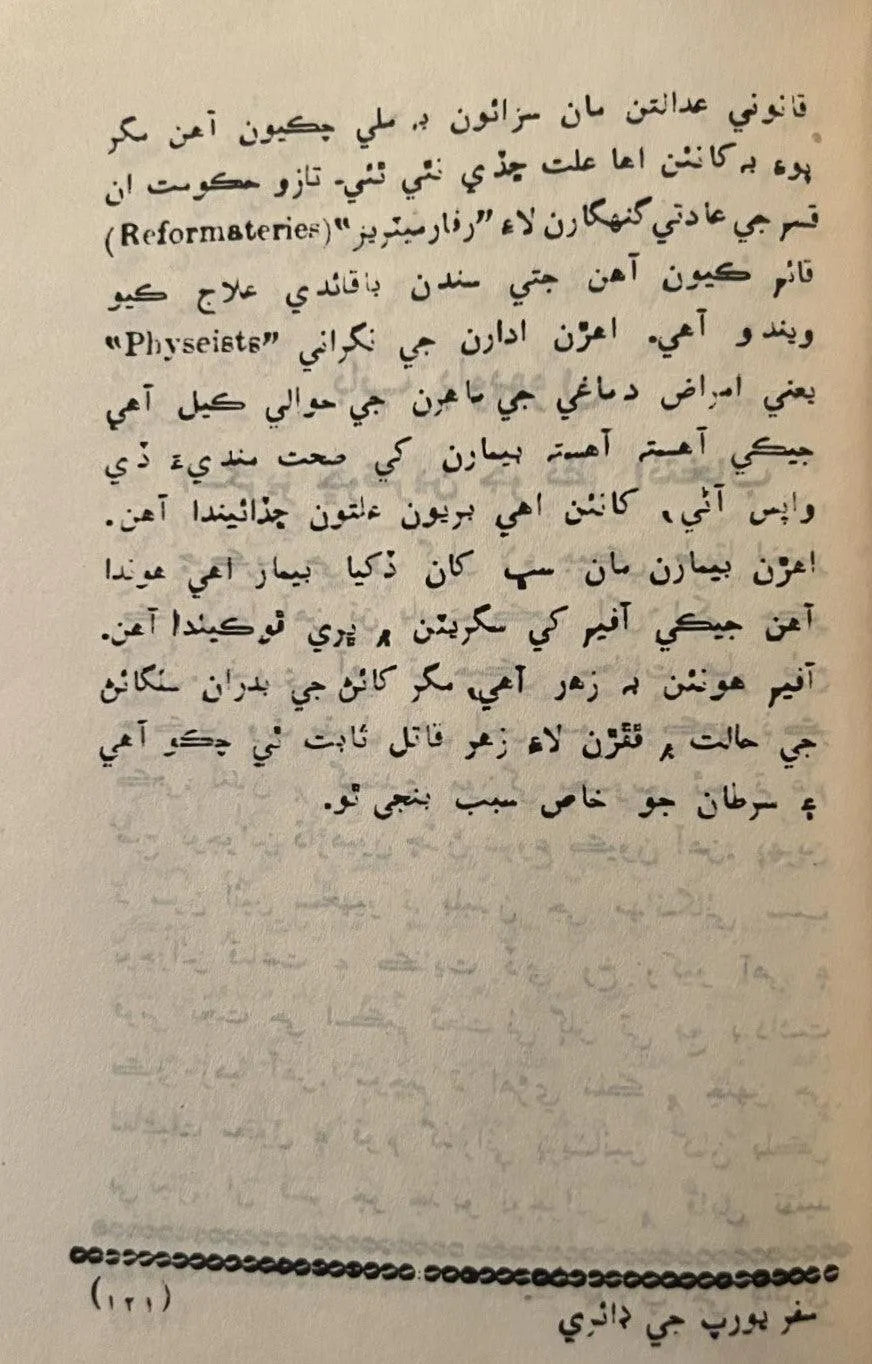 قانوني عدالتن مان سزائون به ملي چڪيون آهن مگر
پوءِ به کانئن اها علت ڇڏي نٿي ٿئي۔ تازو حڪومت ان
قسم جي عادتي گنهگارن لاءِ ”رفارميٽريز“ (Reformateries)
قائم ڪيون آهن جتي سندن باقائدي علاج ڪيو
ويندو آهي. اهڙن ادارن جي نگراني “Physeists”
يعني امراض دماغي جي ماهرن جي حوالي ڪيل آهي
جيڪي آهستہ آهستہ بيمارن کي صحت منديءَ ڏي
واپس آڻي، کانئن اهي بريون علتون ڇڏائيندا آهن.
اهڙن بيمارن مان سڀ کان ڏکيا بيمار اهي هوندا
آهن جيڪي آفيم کي سگريٽن ۾ ڀري ڦوڪيندا آهن.
آفيم هونئن به زهر آهي، مگر کائڻ جي بدران سلگائڻ
جي حالت ۾ ڦڦڙن لاءِ زهر قاتل ثابت ٿي چڪو آهي
۽ سرطان جو خاص سبب بنجي ٿو.
سفر يورپ جي ڊائري
(١٢١)